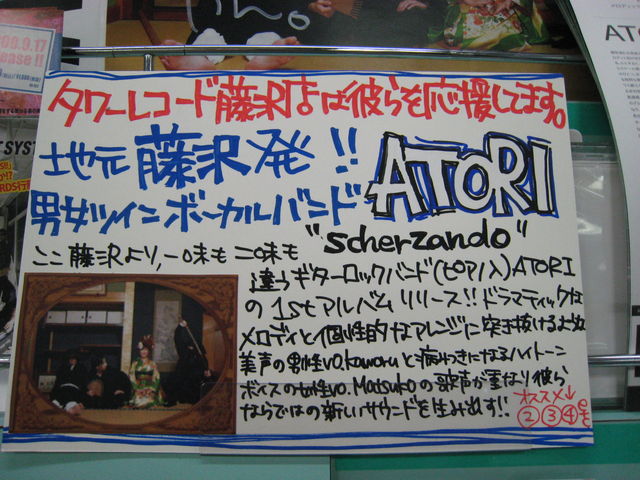 タワーレコード藤沢店は彼らを応援してます。
地元藤沢発!!
男女ツインボーカルバンド
ATORI
"scherzando"
ここ藤沢より、一味も二味も
違うギターロックバンド(ピアノ入)ATORI
の1stアルバムリリース!!ドラマティックな
メロディと個性的なアレンジに突き抜けるような
美声の男性vo.kaworuと病みつきになるハイトーン
ボイスの女性vo.Matsukoの歌声が重なり彼ら
ならではの新しいサウンドを生み出す!!
オススメ↓
②③④etc
9.17
ATO
SYST